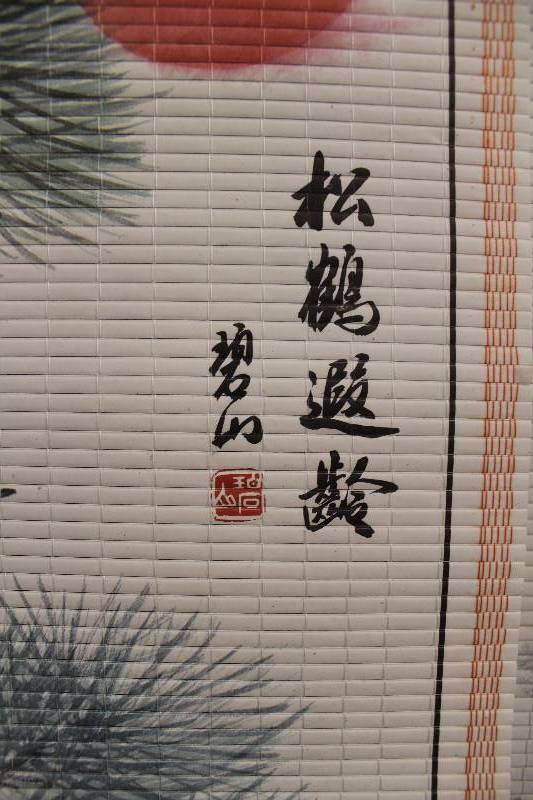 松鶴遐齡
碧山
碧山